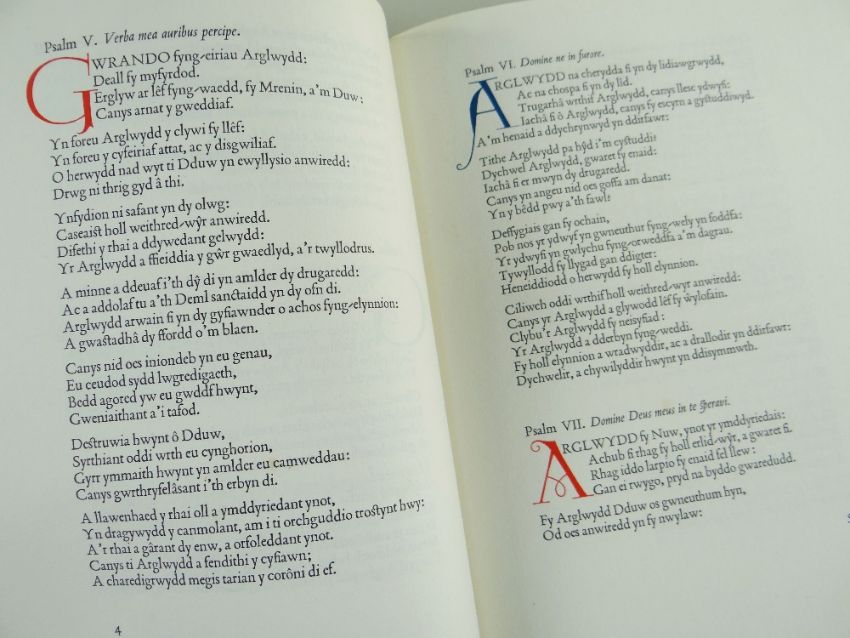 Psalm V. Verba mea auribus percipe.
GWRANDO fyng-eiriau Arglwydd:
Deall fy myfyrdod.
Erglyw ar lêf fyng-waedd, fy Mrenin, a'm Duw:
Canys arnat y gweddiaf.
Yn foreu Arglwydd y clywi fy llêf:
Yn foreu y cyfeiriaf attat, ac y disgwiliaf.
O herwydd nad wyt ti Dduw yn ewyllysio anwiredd:
Drwg ni thrig gyd â thi.
Ynfydion ni safant yn dy olwg:
Caseaist holl weithred-wŷr anwiredd.
Difethi y rhai a ddywedant gelwydd:
Yr Arglwydd a ffieiddia y gŵr gwaedlyd, a'r twyllodrus.
A minne a ddeuaf i'th dŷ di yn amlder dy drugaredd:
Ac a addolaf tu a'th Deml sanctaidd yn dy ofn di.
Arglwydd arwain fi yn dy gyfiawnder o achos fyng-elynnion:
A gwastadhâ dy ffordd o'm blaen.
Canys nid oes iniondeb yn eu genau,
Eu ceudod sydd lwgredigaeth,
Bedd agored yw eu gwddf hwynt,
Gweniaithant a'i tafod.
Destruwia hwynt ô Dduw,
Syrthiant oddi wrth eu cynghorion,
Gyrr ymmaith hwynt yn amlder eu camweddau:
Canys gwrthryfelâsant i'th erbyn di.
A llawenhaed y rhai oll a ymddyriedant ynot,
Yn dragywydd y canmolant, am i ti orchguddio trostynt hwy:
A'r rhai a gârant dy enw, a orfoleddant ynot.
Canys ti Arglwydd a fendithi y cyfiawn;
A charedigrwydd megis tarian y corôni di ef.
4
Psalm VI. Domine ne in furore.
ARGLWYDD na cherydda fi yn dy lidiawgrwydd,
Ac na chospa fi yn dy lid.
Trugarhâ wrthif Arglwydd, canys llesc ydwyfi:
Iachâ fi ô Arglwydd, canys fy escyrn a gystuddiwyd.
A'm henaid a ddychrynwyd yn ddirfawr:
Tithe Arglwydd pa hŷd i'm cystuddi?
Dychwel Arglwydd, gwaret fy enaid:
Iachâ fi er mwyn dy drugaredd.
Canys yn angeu nid oes goffa am danat:
Yn y bêdd pwy a'th fawl?
Deffygiais gan fy ochain,
Pob nos yr ydwyf yn gwneuthur fyng-wely yn foddfa:
Yr ydwyfi yn gwlychu fyng-orweddfa a'm dagrau.
Tywyllodd fy llygad gan ddigter:
Heneiddiodd o herwydd fy holl elynnion.
Ciliwch oddi wrthif holl weithred-wyr anwiredd:
Canys yr Arglwydd a glywodd lêf fy ŵylofain.
Clybu'r Arglwydd fy neisyfiad:
Yr Arglwydd a dderbyn fyng-weddi.
Fy holl elynnion a wradwyddir, ac a drallodir yn ddirfawr:
Dychwelir, a chywilyddir hwynt yn ddisymmwth.
Psalm VII. Domine Deus meus in te speravi.
ARGLWYDD fy Nuw, ynot yr ymddyriedais:
Achub fi rhag fy holl erlid-wŷr, a gwaret fi.
Rhag iddo larpio fy enaid fel llew:
Gan ei rwygo, pryd na byddo gwaredudd.
Fy Arglwydd Dduw os gwneuthum hyn,
Od oes anwiredd yn fy nwylaw: